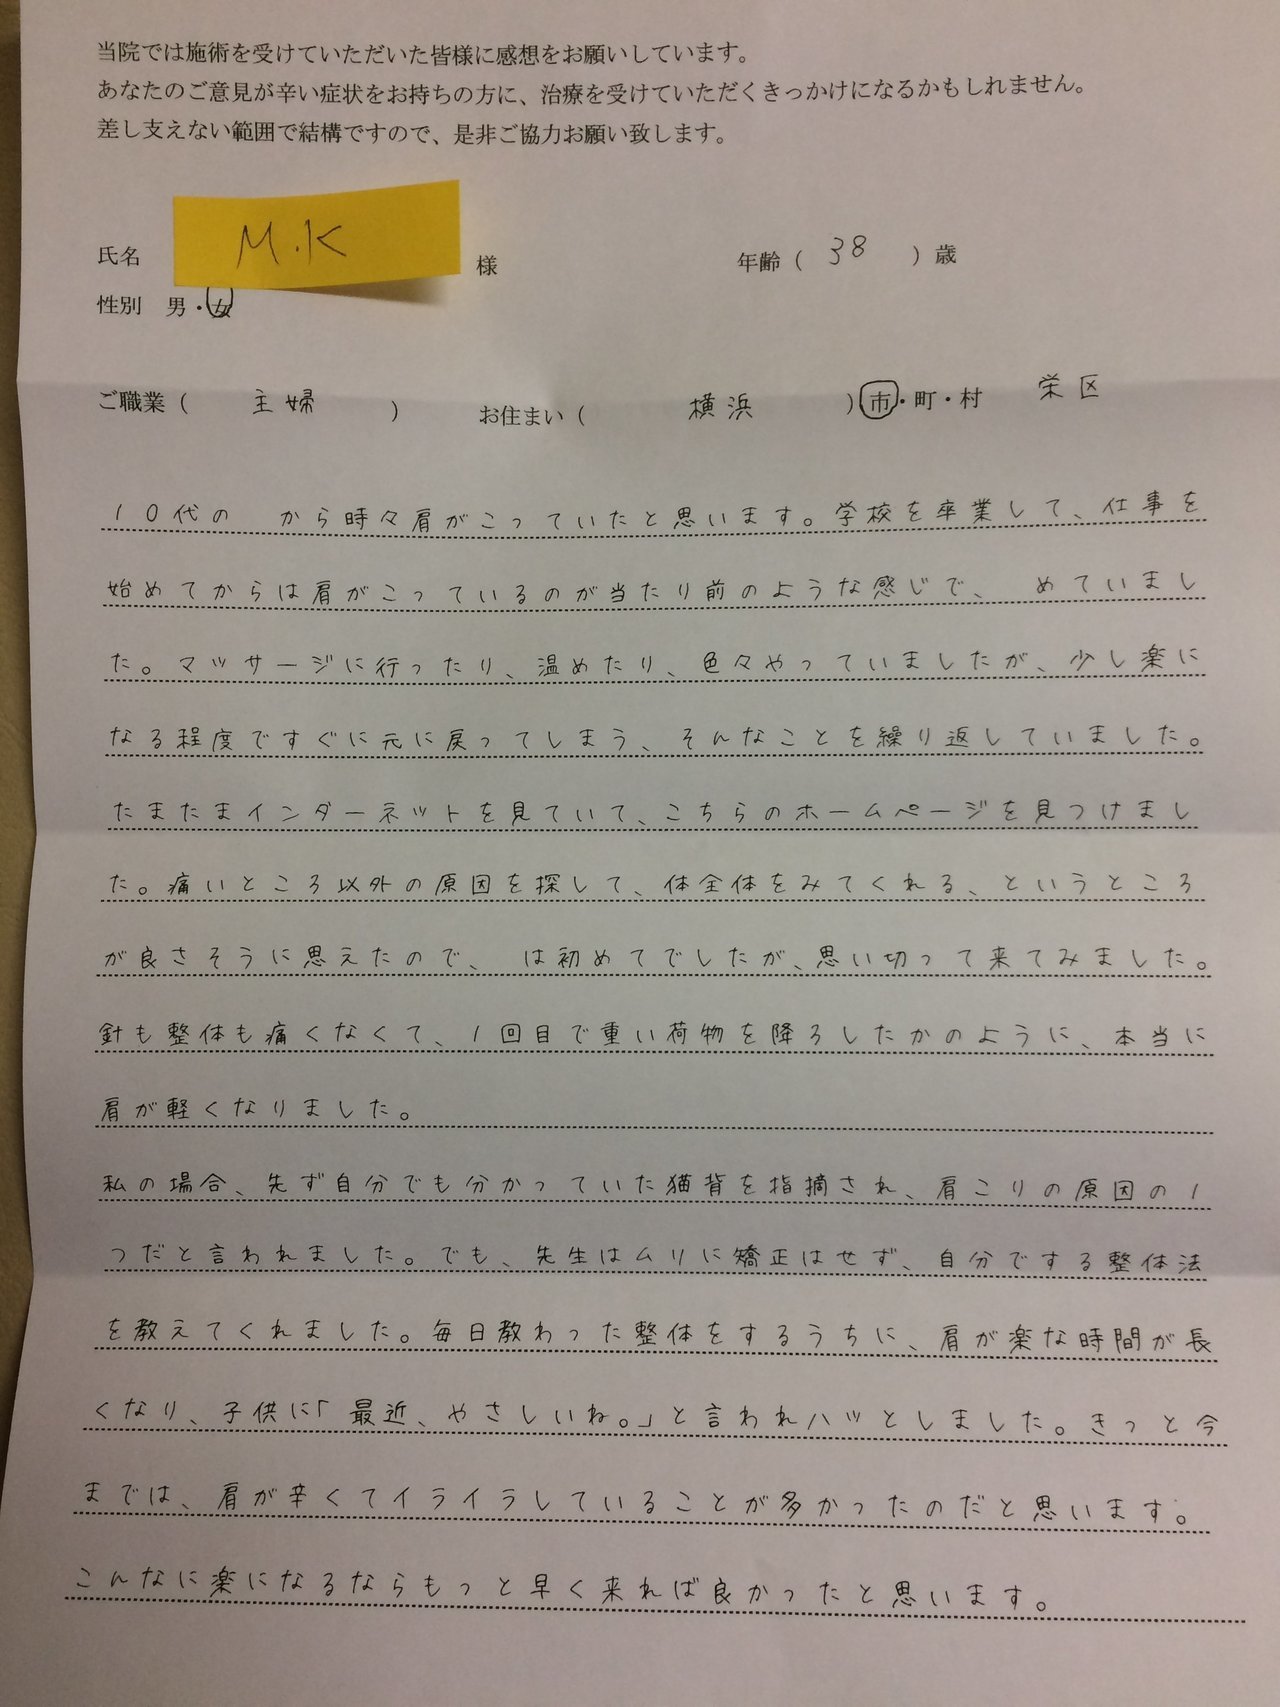 当院では施術を受けていただいた皆様に感想をお願いしています。
あなたのご意見が辛い症状をお持ちの方に、治療を受けていただくきっかけになるかもしれません。
差し支えない範囲で結構ですので、是非ご協力お願い致します。
氏名 M.K 様 年齢（ 38 ）歳
性別 男・女
ご職業（ 主婦 ） お住まい（ 横浜 ）市・町・村 栄区
10代の から時々肩がこっていたと思います。学校を卒業して、仕事を
始めてからは肩がこっているのが当たり前のような感じで、 めていまし
た。マッサージに行ったり、温めたり、色々やっていましたが、少し楽に
なる程度ですぐに元に戻ってしまう、そんなことを繰り返していました。
たまたまインターネットを見ていて、こちらのホームページを見つけまし
た。痛いところ以外の原因を探して、体全体をみてくれる、というところ
が良さそうに思えたので、 は初めてでしたが、思い切って来てみました。
針も整体も痛くなくて、1回目で重い荷物を降ろしたかのように、本当に
肩が軽くなりました。
私の場合、先ず自分でも分かっていた猫背を指摘され、肩こりの原因の1
つだと言われました。でも、先生はムリに矯正はせず、自分でする整体法
を教えてくれました。毎日教わった整体をするうちに、肩が楽な時間が長
くなり、子供に「最近、やさしいね。」と言われハッとしました。きっと今
までは、肩が辛くてイライラしていることが多かったのだと思います。
こんなに楽になるならもっと早く来れば良かったと思います。